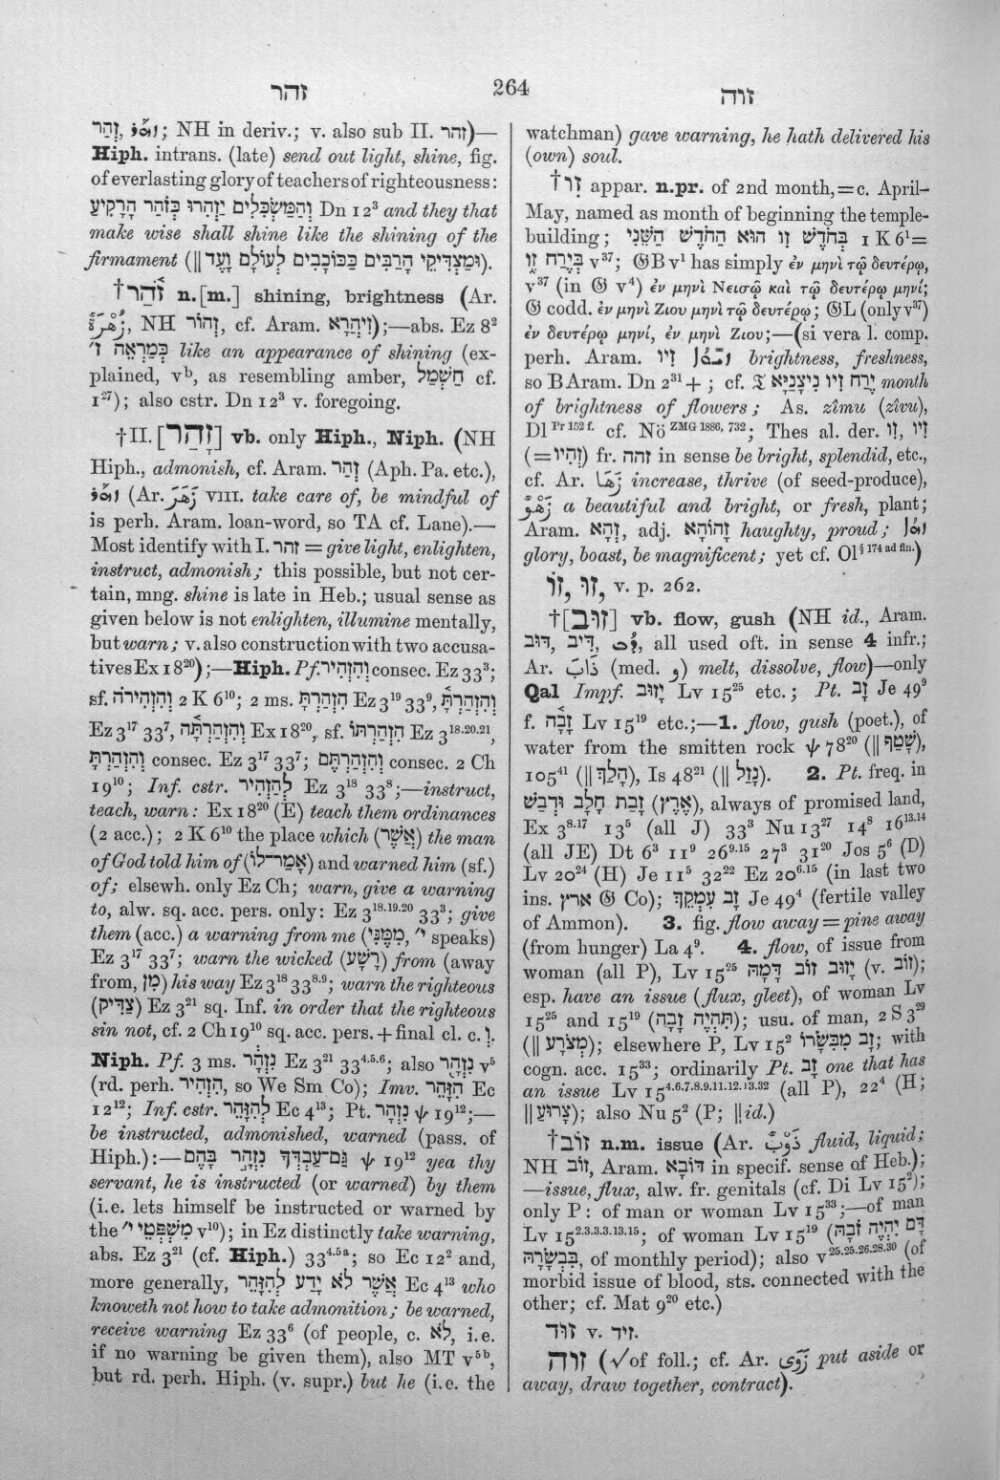 זהר
264
זוה
זְהַר, ; NH in deriv.; v. also sub II. זהר)—
Hiph. intrans. (late) send out light, shine, fig.
of everlasting glory of teachers of righteousness:
וְהַמַּשְׂכִּלִים יַזְהִרוּ כְּזֹהַר הָרָקִיעַ Dn 12³ and they that
make wise shall shine like the shining of the
firmament (|| וּמַצְדִּיקֵי הָרַבִּים כַּכּוֹכָבִים לְעוֹלָם וָעֶד).
†זֹ֫הַר n.[m.] shining, brightness (Ar.
زُهْرَةٌ, NH זָהוֹר, cf. Aram. זִיהֲרָא);—abs. Ez 8²
כְּמַרְאֵה ז׳ like an appearance of shining (ex-
plained, vᵇ, as resembling amber, חַשְׁמַל cf.
1²⁷); also cstr. Dn 12³ v. foregoing.
†II. [זָהַר] vb. only Hiph., Niph. (NH
Hiph., admonish, cf. Aram. זְהַר (Aph. Pa. etc.),
(Ar. زَهَرَ VIII. take care of, be mindful of
is perh. Aram. loan-word, so TA cf. Lane).—
Most identify with I. זהר = give light, enlighten,
instruct, admonish; this possible, but not cer-
tain, mng. shine is late in Heb.; usual sense as
given below is not enlighten, illumine mentally,
but warn; v. also construction with two accusa-
tives Ex 18²⁰);—Hiph. Pf. וְהִזְהִיר consec. Ez 33³;
sf. וְהִזְהִירֹה 2 K 6¹⁰; 2 ms. הִזְהַרְתָּ Ez 3¹⁹ 33⁹, וְהִזְהַרְתָּ֫
Ez 3¹⁷ 33⁷, וְהִזְהַרְתָּ֫ה Ex 18²⁰, sf. הִזְהַרְתּוֹ Ez 3¹⁸·²⁰·²¹,
וְהִזְהַרְתָּ consec. Ez 3¹⁷ 33⁷; וְהִזְהַרְתֶּם consec. 2 Ch
19¹⁰; Inf. cstr. לְהַזְהִיר Ez 3¹⁸ 33⁸;—instruct,
teach, warn: Ex 18²⁰ (E) teach them ordinances
(2 acc.); 2 K 6¹⁰ the place which (אֲשֶׁר) the man
of God told him of (אָמַר־לוֹ) and warned him (sf.)
of; elsewh. only Ez Ch; warn, give a warning
to, alw. sq. acc. pers. only: Ez 3¹⁸·¹⁹·²⁰ 33³; give
them (acc.) a warning from me (מִמֶּנִּי, י״ speaks)
Ez 3¹⁷ 33⁷; warn the wicked (רָשָׁע) from (away
from, מִן) his way Ez 3¹⁸ 33⁸·⁹; warn the righteous
(צַדִּיק) Ez 3²¹ sq. Inf. in order that the righteous
sin not, cf. 2 Ch 19¹⁰ sq. acc. pers. + final cl. c. וְ.
Niph. Pf. 3 ms. נִזְהָ֑ר Ez 3²¹ 33⁴·⁵·⁶; also נִזְהָר v⁵
(rd. perh. הִזְהִיר, so We Sm Co); Imv. הִזָּהֵר Ec
12¹²; Inf. cstr. לְהִזָּהֵר Ec 4¹³; Pt. נִזְהָר ψ 19¹²;—
be instructed, admonished, warned (pass. of
Hiph.):—גַּם־עַבְדְּךָ נִזְהָר בָּהֶם ψ 19¹² yea thy
servant, he is instructed (or warned) by them
(i.e. lets himself be instructed or warned by
the מִשְׁפְּטֵי י״ v¹⁰); in Ez distinctly take warning,
abs. Ez 3²¹ (cf. Hiph.) 33⁴·⁵ᵃ; so Ec 12² and,
more generally, אֲשֶׁר לֹא יָדַע לְהִזָּהֵר Ec 4¹³ who
knoweth not how to take admonition; be warned,
receive warning Ez 33⁶ (of people, c. לֹא, i.e.
if no warning be given them), also MT v⁵ᵇ,
but rd. perh. Hiph. (v. supr.) but he (i.e. the
watchman) gave warning, he hath delivered his
(own) soul.
†זִו appar. n.pr. of 2nd month, = c. April–
May, named as month of beginning the temple-
building; בְּחֹדֶשׁ זִו הוּא הַחֹדֶשׁ הַשֵּׁנִי 1 K 6¹ =
בְּיֶרַח זִו v³⁷; 𝔊B v¹ has simply ἐν μηνὶ τῷ δευτέρῳ,
v³⁷ (in 𝔊 v⁴) ἐν μηνὶ Νεισῷ καὶ τῷ δευτέρῳ μηνί;
𝔊 codd. ἐν μηνὶ Ζιου μηνὶ τῷ δευτέρῳ; 𝔊L (only v³⁷)
ἐν δευτέρῳ μηνί, ἐν μηνὶ Ζιου;—(si vera l. comp.
perh. Aram. זִיו brightness, freshness,
so BAram. Dn 2³¹ +; cf. 𝔗 יֶרַח זִיו נִיצָנַיָּא month
of brightness of flowers; As. zîmu (zîvu),
Dl Pr 152 f. cf. Nö ZMG 1886, 732; Thes al. der. זִו, זִיו
(= זִהְיוּ) fr. זהה in sense be bright, splendid, etc.,
cf. Ar. زَهَا increase, thrive (of seed-produce),
زَهْوٌ a beautiful and bright, or fresh, plant;
Aram. זְהָא, adj. זָהוֹהָא haughty, proud;
glory, boast, be magnificent; yet cf. Ol § 174 ad fin.)
זוּ, זוֹ, v. p. 262.
†[זוּב] vb. flow, gush (NH id., Aram.
דּוּב, דִּיב, , all used oft. in sense 4 infr.;
Ar. ذَابَ (med. و) melt, dissolve, flow)—only
Qal Impf. יָזוּב Lv 15²⁵ etc.; Pt. זָב Je 49⁹
f. זָבָ֫ה Lv 15¹⁹ etc.;—1. flow, gush (poet.), of
water from the smitten rock ψ 78²⁰ (|| שָׁטַף),
105⁴¹ (|| הָלַךְ), Is 48²¹ (|| נָזַל). 2. Pt. freq. in
(אֶרֶץ) זָבַת חָלָב וּדְבַשׁ, always of promised land,
Ex 3⁸·¹⁷ 13⁵ (all J) 33³ Nu 13²⁷ 14⁸ 16¹³·¹⁴
(all JE) Dt 6³ 11⁹ 26⁹·¹⁵ 27³ 31²⁰ Jos 5⁶ (D)
Lv 20²⁴ (H) Je 11⁵ 32²² Ez 20⁶·¹⁵ (in last two
ins. ארץ 𝔊 Co); זָב עִמְקֵךְ Je 49⁴ (fertile valley
of Ammon). 3. fig. flow away = pine away
(from hunger) La 4⁹. 4. flow, of issue from
woman (all P), Lv 15²⁵ יָזוּב זוֹב דָּמָהּ (v. זוֹב);
esp. have an issue (flux, gleet), of woman Lv
15²⁵ and 15¹⁹ (תִּהְיֶה זָבָה); usu. of man, 2 S 3²⁹
(|| מְצֹרָע); elsewhere P, Lv 15² זָב מִבְּשָׂרוֹ; with
cogn. acc. 15³³; ordinarily Pt. זָב one that has
an issue Lv 15⁴·⁶·⁷·⁸·⁹·¹¹·¹²·¹³·³² (all P), 22⁴ (H;
|| צָרוּעַ); also Nu 5² (P; || id.)
†זוֹב n.m. issue (Ar. ذَوْبٌ fluid, liquid;
NH זוֹב, Aram. דּוֹבָא in specif. sense of Heb.);
—issue, flux, alw. fr. genitals (cf. Di Lv 15²);
only P: of man or woman Lv 15³³;—of man
Lv 15²·³·³·³·¹³·¹⁵; of woman Lv 15¹⁹ (דָּם יִהְיֶה זֹבָהּ
בִּבְשָׂרָהּ, of monthly period); also v²⁵·²⁵·²⁶·²⁸·³⁰ (of
morbid issue of blood, sts. connected with the
other; cf. Mat 9²⁰ etc.)
זוּד v. זיד.
זוה (√ of foll.; cf. Ar. زَوَى put aside or
away, draw together, contract).